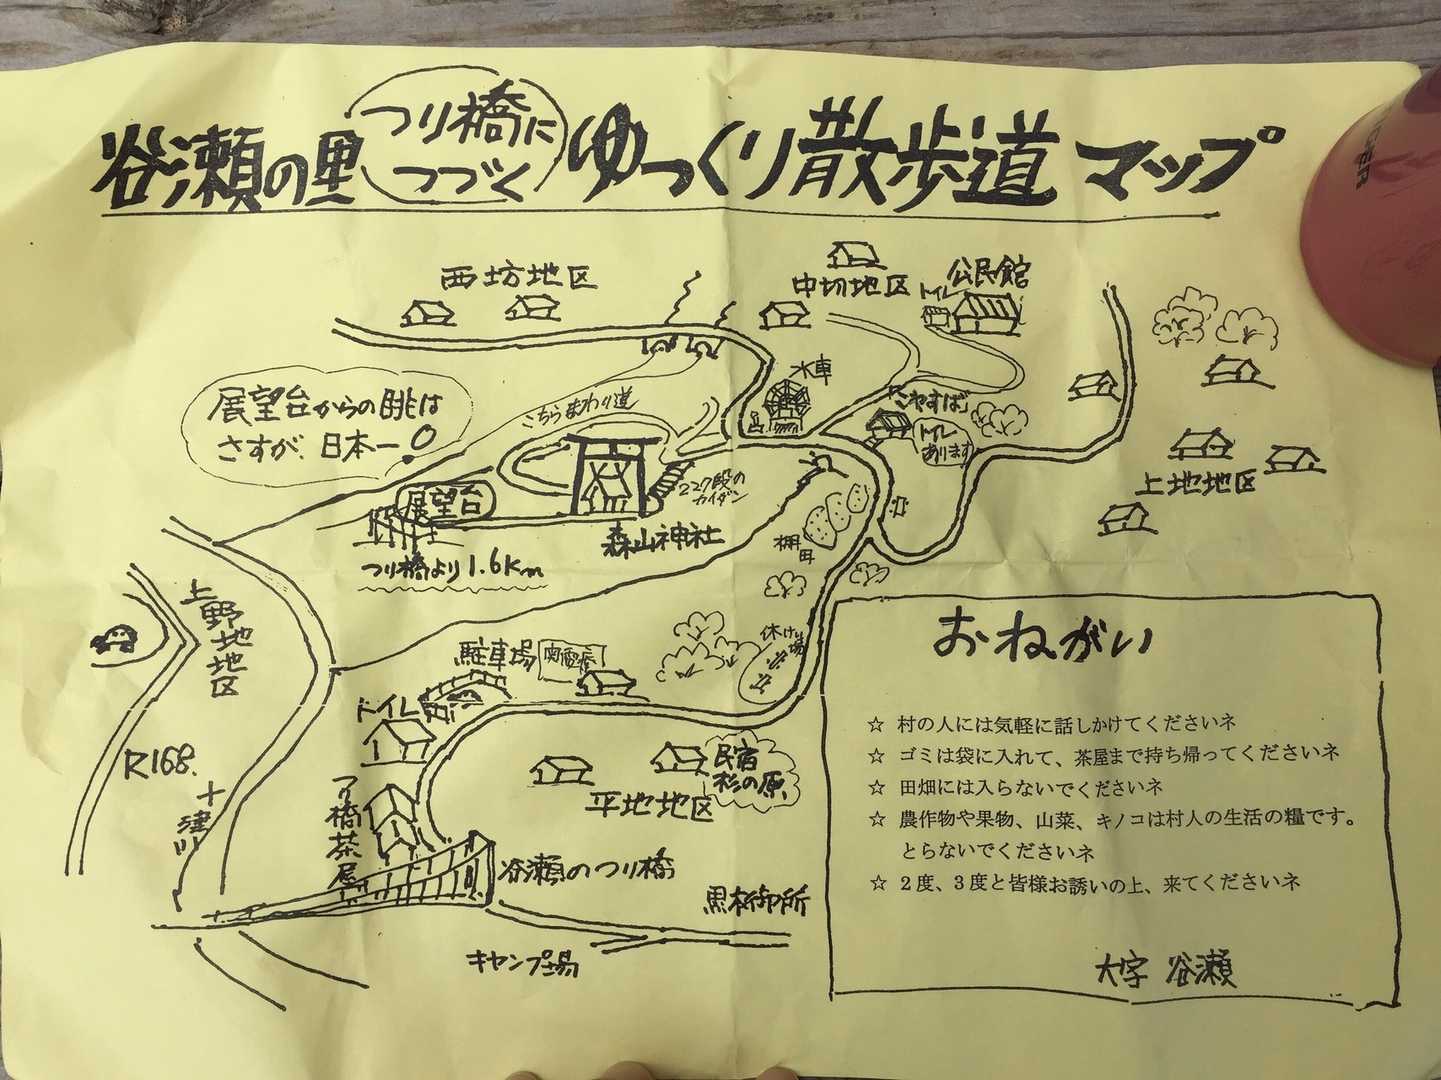 谷瀬の里
つり橋に
つづく
ゆっくり散歩道マップ
西坊地区
中切地区
公民館
トイレ
水車
こやすば
トイレ
あります
展望台からの眺は
さすが、日本一!
こちらまわり道
展望台
227段の
カイダン
森山神社
つり橋より1.6km
上地地区
棚田
上野地地区
休けい場
駐車場
トイレ
R168.
十津川
つり橋茶屋
民宿
杉の原
平地地区
谷瀬のつり橋
黒木御所
キャンプ場
おねがい
☆ 村の人には気軽に話しかけてくださいネ
☆ ゴミは袋に入れて、茶屋まで持ち帰ってくださいネ
☆ 田畑には入らないでくださいネ
☆ 農作物や果物、山菜、キノコは村人の生活の糧です。
とらないでくださいネ
☆ 2度、3度と皆様お誘いの上、来てくださいネ
大字 谷瀬